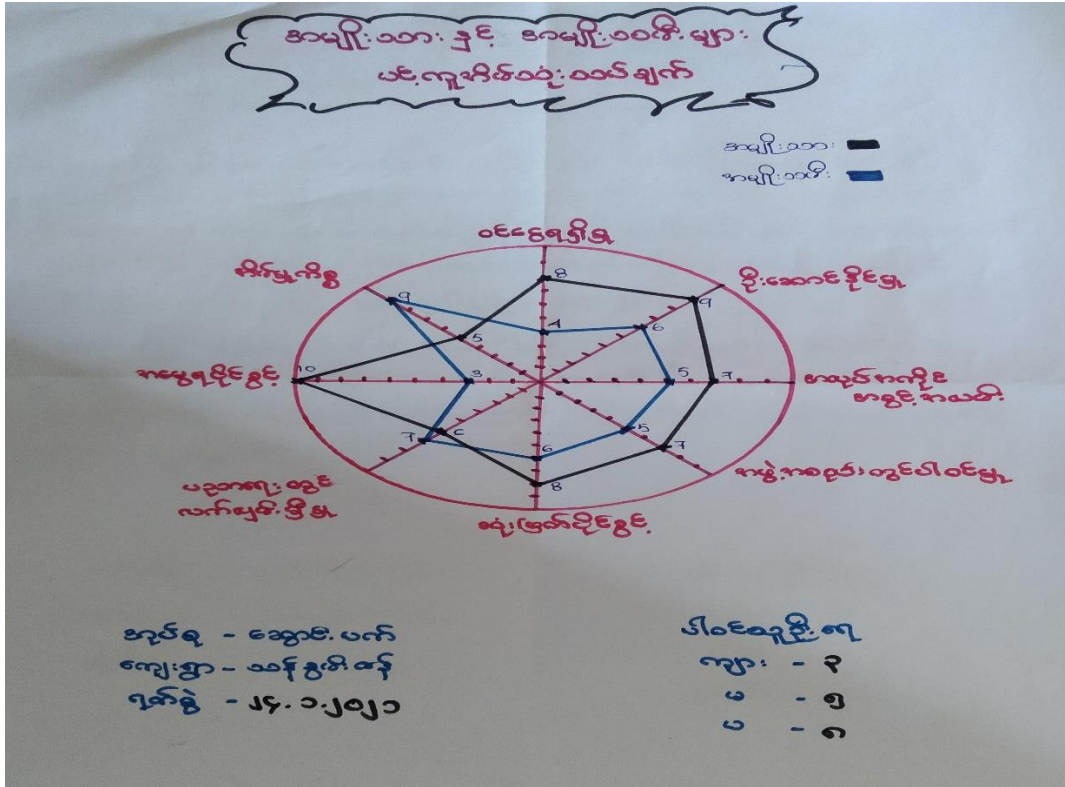 အမျိုးသားနှင့် အမျိုးသမီးများ
ပင့်ကူအိမ်သုံးသပ်ချက်
အမျိုးသား
အမျိုးသမီး
ဝင်ငွေရရှိမှု
ဦးဆောင်နိုင်မှု
အလုပ်အကိုင်
အခွင့်အလမ်း
အဖွဲ့အစည်းတွင်ပါဝင်မှု
ဆုံးဖြတ်ပိုင်ခွင့်
ပညာရေးတွင်
လက်လှမ်းမှီမှု
အမွေရပိုင်ခွင့်
အိမ်မှုကိစ္စ
8
9
7
7
8
6
10
5
4
6
5
5
6
7
3
9
အုပ်စု -
ကျေးရွာ -
ရက်စွဲ - ၂၄.၁.၂၀၂၁
ပါဝင်သူဦးရေ
ကျား - ၃
မ - ၅
ပ - ၈